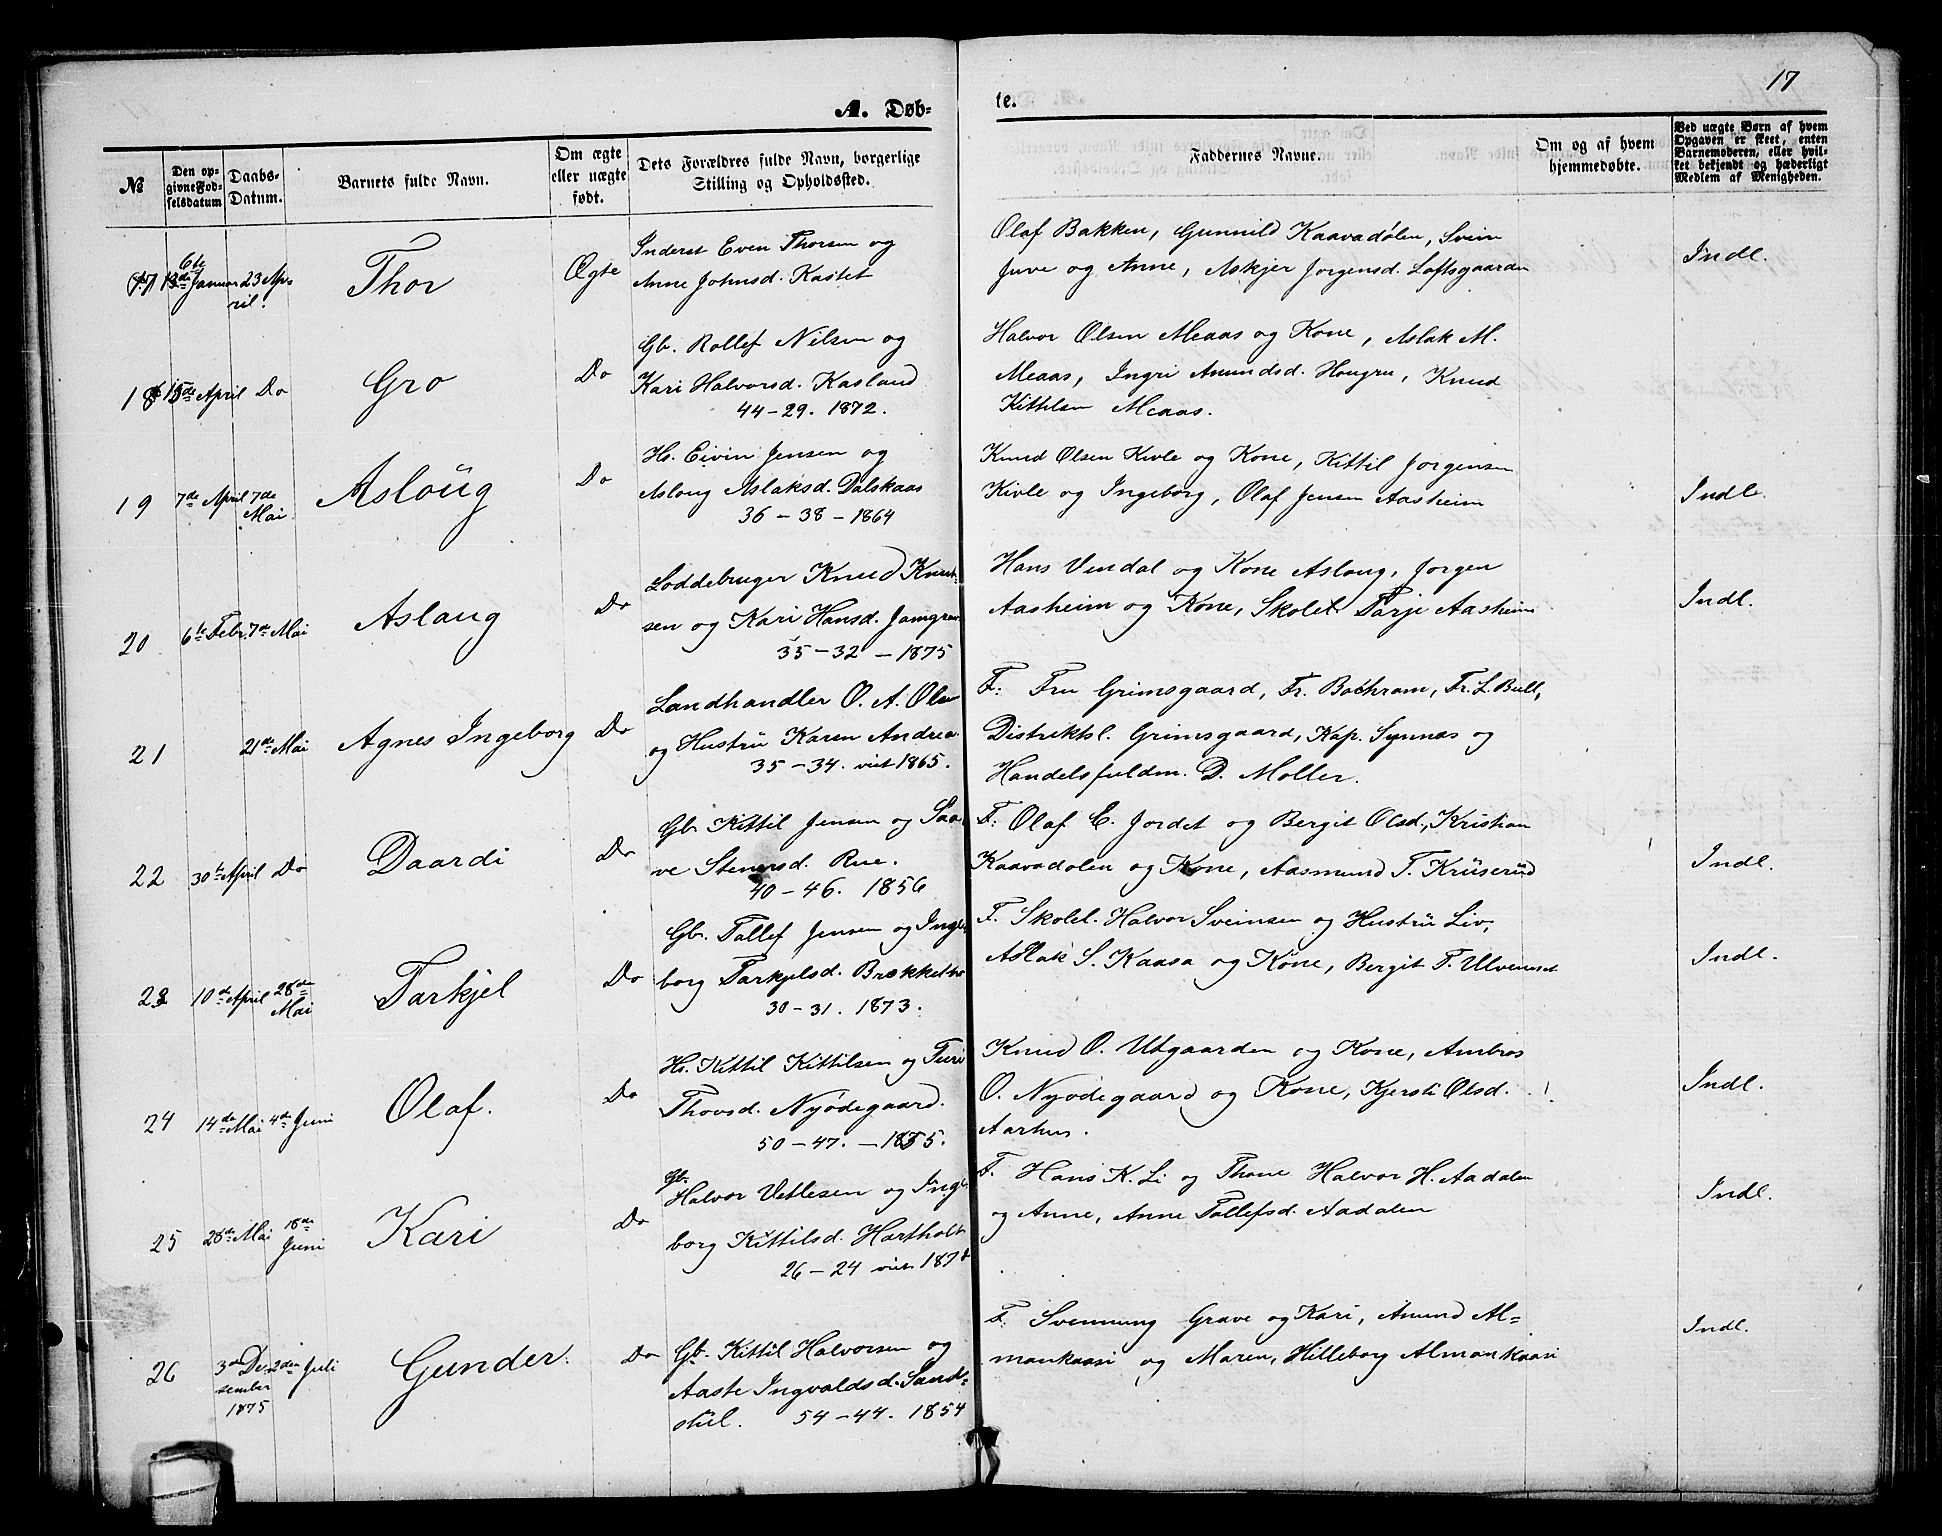 17
A. Døb-
te.
№
Den op-
givne Fød-
selsdatum
Daabs-
Datum.
Barnets fulde Navn.
Om ægte
eller uægte
født.
Dets Forældres fulde Navn, borgerlige
Stilling og Opholdssted.
Faddernes Navne.
Om og af hvem
hjemmedøbte.
Ved uægte Børn af hvem
Opgaven er skeet, enten
Barnemoderen, eller hvil-
ket bekjendt og hæderligt
Medlem af Menigheden.
17 6te Januar 23 Ap-
ril.
Thor
Ægte
Inderst Even Thorsen og
Anne Johnsd. Kastet
Olaf Bakken, Gunnild Kaavadølen, Svein
Juve og Anne, Askjer Jorgensd. Loftsgaarden
Indl.
18 15de April Do
Gro
Do
Gb. Rollef Nilsen og
Kari Halvorsd. Kasland
44-29. 1872.
Halvor Olsen Meaas og Kone, Aslak M.
Meaas, Ingri Amundsd. Haugru, Knud
Kittilsen Meaas.
19 7de April 7de
Mai
Asloug
Do
Hs. Eivin Jensen og
Asloug Aslaksd. Dalskaas
36-38-1864
Knud Olsen Kivle og Kone, Kittil Jorgensen
Kivle og Ingeborg, Olaf Jensen Aasheim
Indl.
20 6te Febr. 7de Mai
Aslaug
Do
Loddebruger Knud Knut-
sen og Kari Hansd. Jamgrav
35-32-1875
Hans Vendal og Kone Aslaug, Jorgen
Aasheim og Kone, Skolel. Tarje Aasheim
Indl.
21 21de Mai
Agnes Ingeborg
Do
Landhandler O. A. Olsen
og Hustru Karen Andrea
35-34. viet 1865.
F: Fru Grimsgaard, Fr. Bachram, Fr. L. Bull,
Distriktsl. Grimsgaard, Kap. Synnæs og
Handelsfuldm. D. Moller.
22 30te April Do
Daardi
Do
Gb. Kittil Jensen og Saa-
ve Stenersd. Rue.
40-46. 1856
F: Olaf E. Jordet og Bergit Olsd., Kristian
Kaavadolen og Kone, Aasmund T. Krüserüd
Indl.
23 10de April 28de
Mai
Tarkjel
Do
Gb. Tallef Jensen og Inge-
borg Tarkjelsd. Brækketvo
30-31. 1873.
F. Skolel. Halvor Sveinsen og Hustru Liv,
Aslak S. Kaasa og Kone, Bergit T. Ulvenæset
Indl.
24 14de Mai 4de Juni
Olaf.
Do
Hs. Kittil Kittilsen og Turi
Thovsd. Nyödegaard.
50-47.-1855.
Knud O. Utgaarden og Kone, Ambros
O. Nyodegaard og Kone, Kjersti Olsd.
Aarhus.
Indl.
25 28de Mai 18de
Juni
Kari
Do
Gb.
Halvor Vetlesen og Inge-
borg Kittilsd. Hartholt
26-24 viet
F. Hans K. Li og Thone Halvor H. Aadalen
og Anne, Anne Tallefsd. Aadalen
Indl.
26 3de De- 2den Juli
sember
1875
Gunder.
Do
Gb. Kittil Halvorsen og
Aaste Ingvaldsd. Sand-
skil. 54-44. 1854
F: Svennung Grave og Kari, Amund Al-
mankaasi og Maren, Hilleborg Almankaasi
Indl.